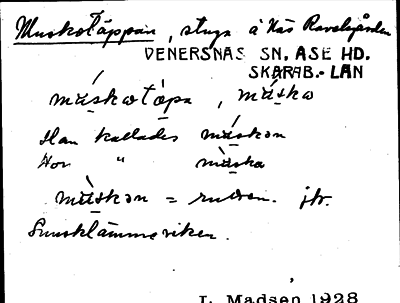 Muskotäppan, stuga å Näs Ravelsgården
VENERSNAS SN. ASE HD.
SKARAB.- LAN
múskotǫ́pa, mús̱ka
Han kallades múskan
Hon " mùska
mùskən = rucken. jfr.
Sunsklämmeriken.
L. Madsen 1928